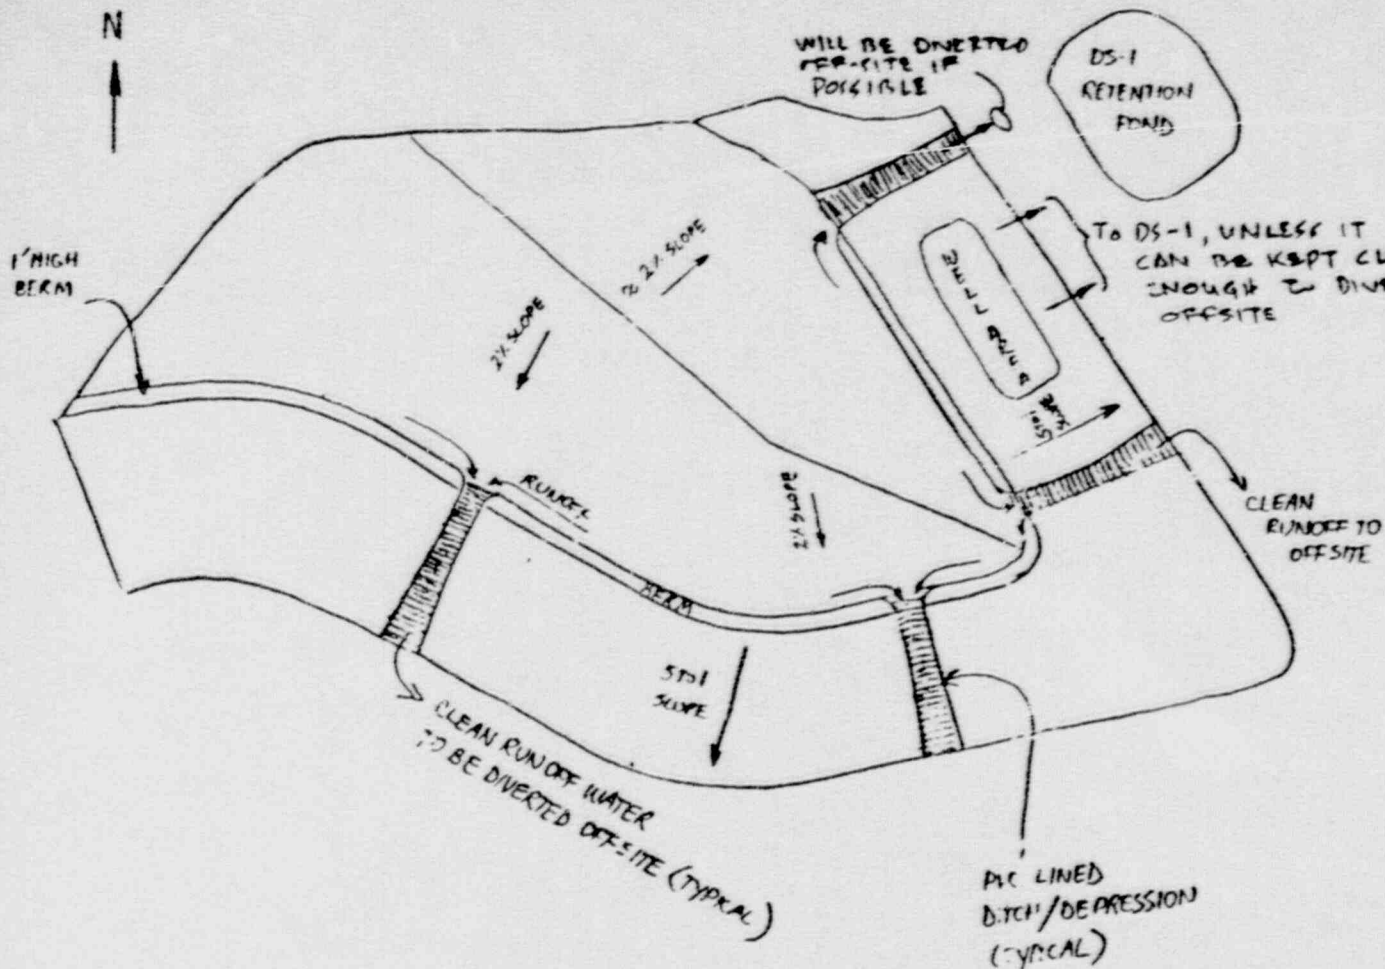 N
WILL BE DIVERTED
OFF-SITE IF
POSSIBLE
DS-1
RETENTION
POND
1' HIGH
BERM
≈ 2% SLOPE
2% SLOPE
TO DS-1, UNLESS IT
CAN BE KEPT CL
ENOUGH TO DIV
OFFSITE
WELL AREA
5TO1
SLOPE
RUNOFF
2% SLOPE
CLEAN
RUNOFF TO
OFFSITE
BERM
5TO1
SLOPE
CLEAN RUNOFF WATER
TO BE DIVERTED OFFSITE (TYPICAL)
PVC LINED
DITCH/DEPRESSION
(TYPICAL)